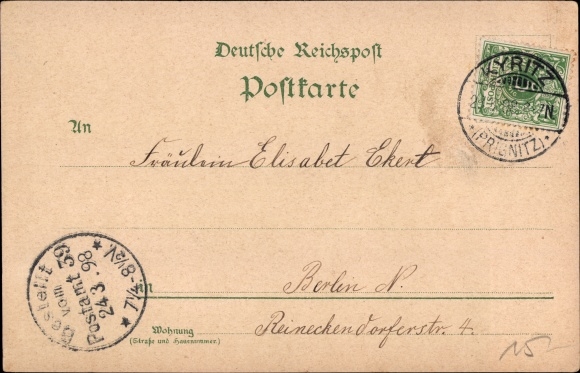 Deutsche Reichspost
Postkarte
KYRITZ
(PRIGNITZ)
An
Fräulein Elisabet Ekert
Bestellt
vom
Postamt 39
24.3.98
7¼-8½V.
in
Berlin N.
Wohnung
(Straße und Hausnummer)
Reineckendorferstr. 4.
15